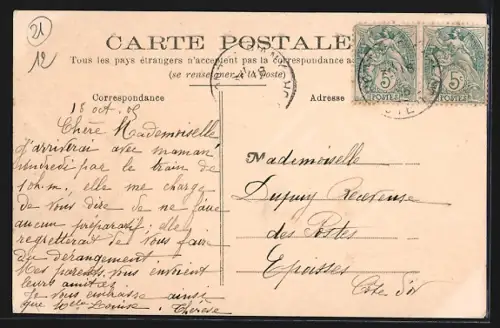 21
12
CARTE POSTALE
Tous les pays étrangers n'acceptent pas la correspondance a
(se renseigner à la Poste)
Correspondance
Adresse
5c
POSTES
5c
POSTES
18 oct. 05
Chère Mademoiselle
J'arriverai avec maman
vendredi par le train de
10h m. elle me charge
de vous dire de ne faire
aucun préparatif; elle
regretterait de vous faire
du dérangement
Mes parents vous envoient
leurs amitiés
Je vous embrasse ainsi
que Mlle Louise. Thérèse
Mademoiselle
Dupuy Receveuse
des Postes
Epoisses
Côte d'or